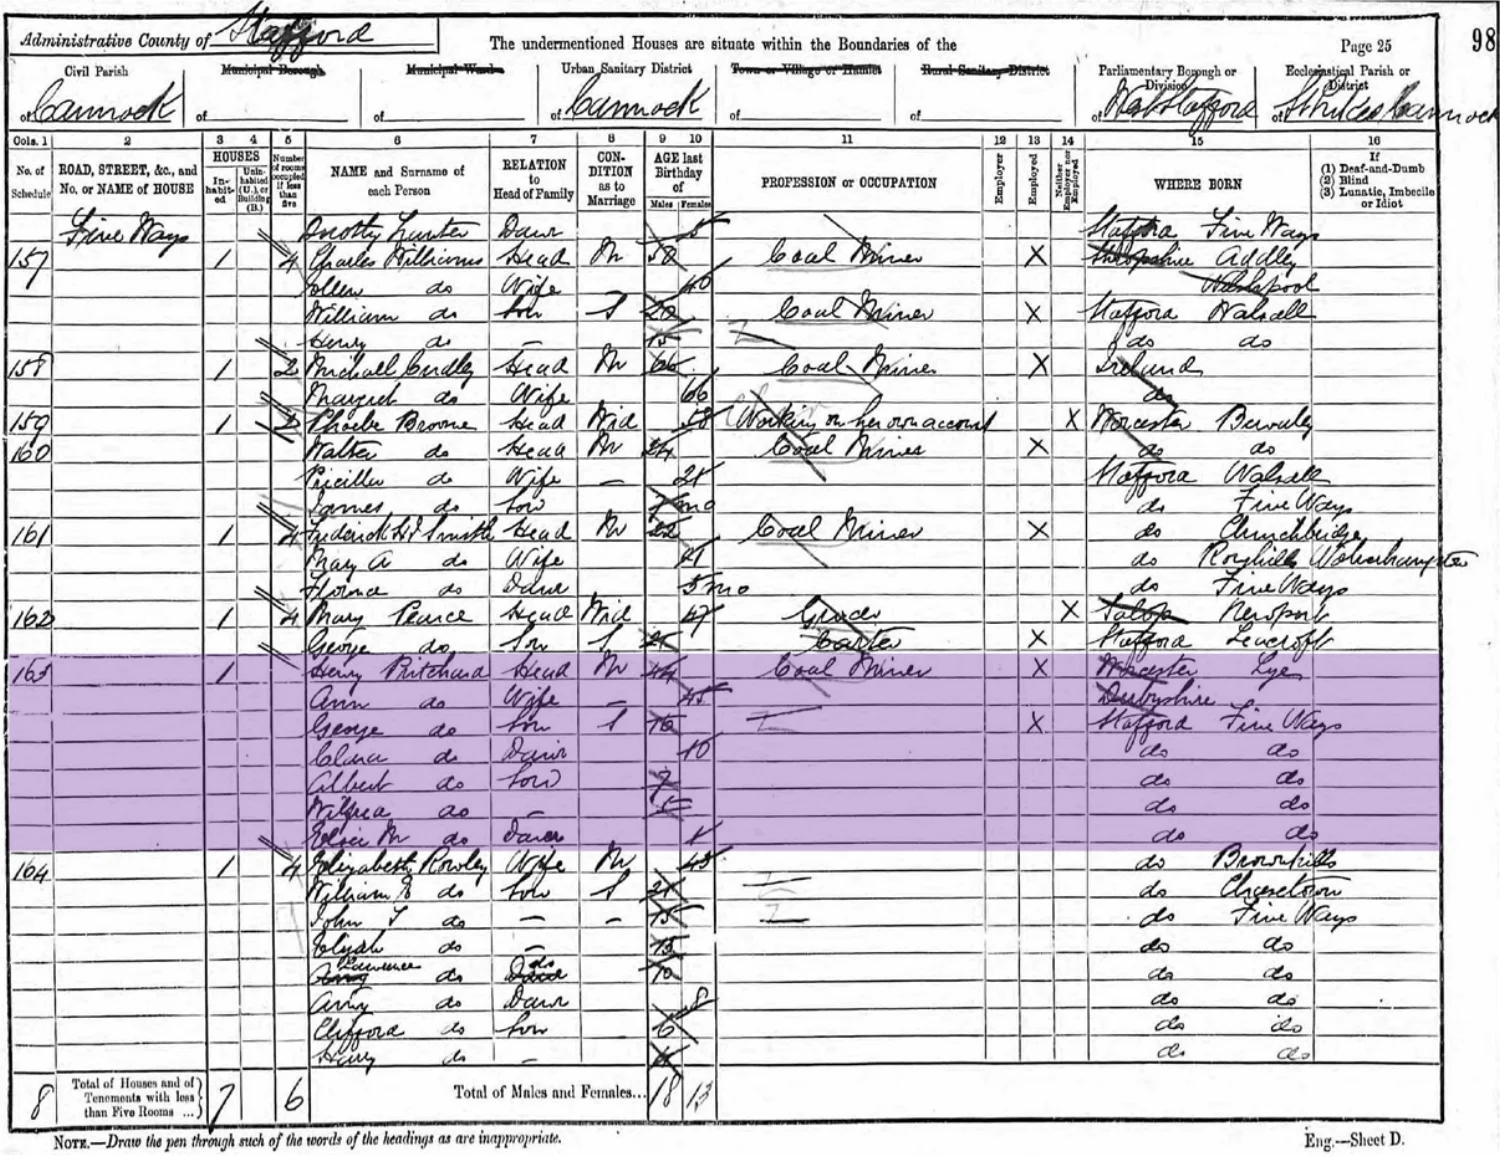 Administrative County of Stafford
The undermentioned Houses are situate within the Boundaries of the
Page 25
98
Civil Parish
Municipal Borough
Municipal Ward
Urban Sanitary District
Town or Village or Hamlet
Rural Sanitary District
Parliamentary Borough or Division
Ecclesiastical Parish or District
of Cannock of of of Cannock of of of West Stafford of St Lukes Cannock
Cols. 1 2 3 4 5 6 7 8 9 10 11 12 13 14 15 16
No. of Schedule
ROAD, STREET, &c., and No. or NAME of HOUSE
HOUSES
In-habit-ed
Unin-habited (U.), or Building (B.)
Number of rooms occupied if less than five
NAME and Surname of each Person
RELATION to Head of Family
CON-DITION as to Marriage
AGE last Birthday of
Males Females
PROFESSION or OCCUPATION
Employer
Employed
Neither Employer nor Employed
WHERE BORN
If
(1) Deaf-and-Dumb
(2) Blind
(3) Lunatic, Imbecile or Idiot
Five Ways Dorothy Daur 5 Stafford Five Ways
157 1 4 Charles Williams Head M 50 Coal Miner X Shropshire
Ellen do Wife 40 Welshpool
William do Son S 20 Coal Miner X Stafford Walsall
Henry do — 15 do do
158 1 2 Michael Head M 66 Coal Miner X Ireland
Margret do Wife 66 do
159 1 2 Phoebe Browne Head Wid 58 Working on her own account X Worcester Bewdley
160 Walter do Head M 24 Coal Miner X do do
Pricilla do Wife — 21 Stafford Walsall
James do Son 7 mo do Five Ways
161 1 4 Frederick Smith Head M 22 Coal Miner X do Churchbridge
Mary A do Wife 21 do Wolverhampton
Florence do Daur 5 mo do Five Ways
162 1 4 Mary Pearce Head Wid 47 Grocer X Salop Newport
George do Son S 21 Carter X Stafford Leacroft
163 1 Henry Pritchard Head M 44 Coal Miner X Worcester Lye
Ann do Wife — 45 Derbyshire
George do Son S 16 X Stafford Five Ways
Clara do Daur 10 do do
Albert do Son 7 do do
Wilfred do — 5 do do
M do Daur 1 do do
164 1 4 Elizabeth Rowley Wife M 43 do Brownhills
William E do Son S 21 do Chasetown
John T do — — 15 do Five Ways
Elijah do — 13 do do
Lawrence do do 10 do do
Amy do Daur 8 do do
Clifford do Son 6 do do
Henry do — 4 do do
8 Total of Houses and of Tenements with less than Five Rooms ... 7 6 Total of Males and Females... 18 13
NOTE.—Draw the pen through such of the words of the headings as are inappropriate.
Eng.—Sheet D.